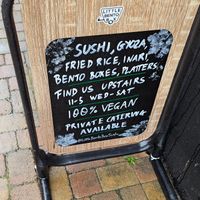 LITTLE
BENTO
SUSHI, GYOZA,
FRIED RICE, INARI,
BENTO BOXES, PLATTERS,
FIND US UPSTAIRS
11-5 WED-SAT
100% VEGAN
PRIVATE CATERING
AVAILABLE